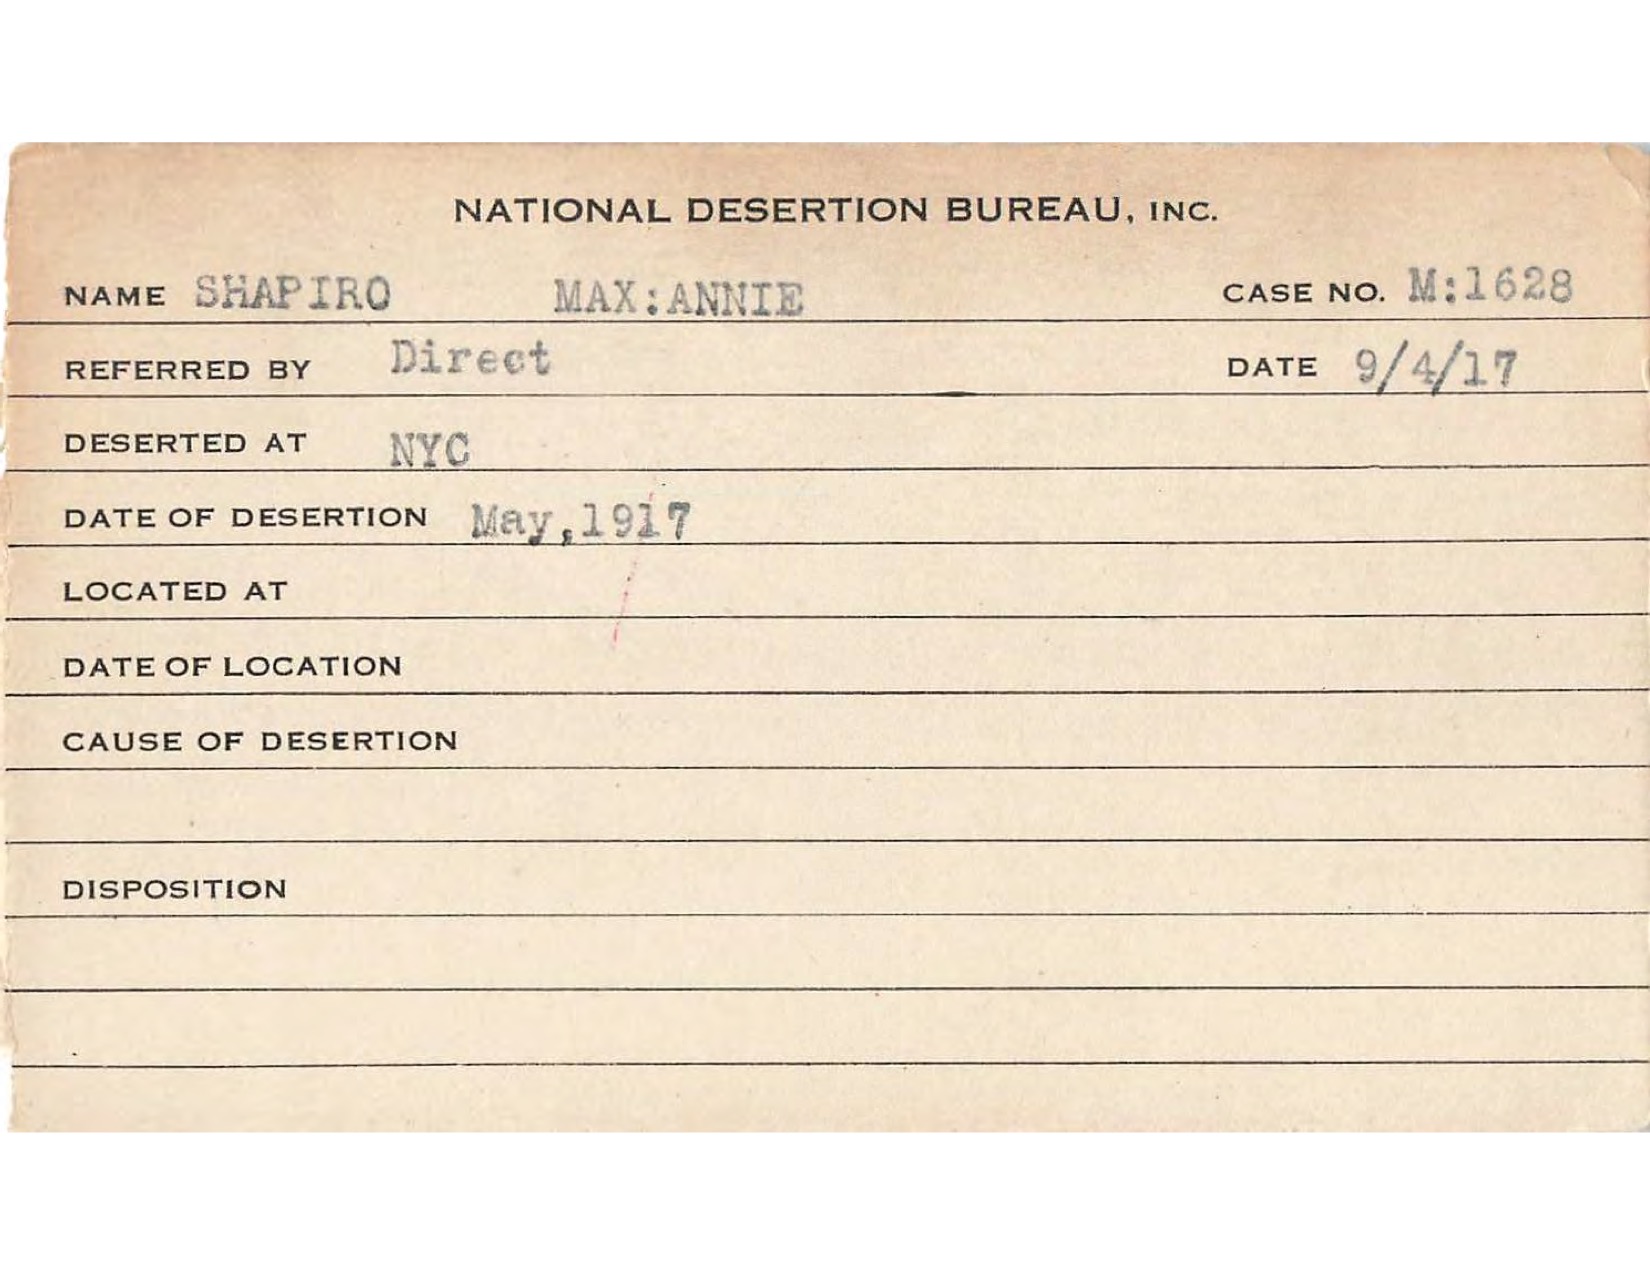 NATIONAL DESERTION BUREAU, INC.
NAME SHAPIRO MAX:ANNIE CASE NO. M:1628
REFERRED BY Direct DATE 9/4/17
DESERTED AT NYC
DATE OF DESERTION May,1917
LOCATED AT
DATE OF LOCATION
CAUSE OF DESERTION
DISPOSITION